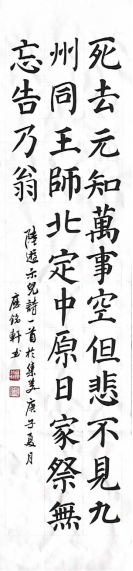 死去元知萬事空但悲不見九
州同王師北定中原日家祭無
忘告乃翁
陸遊示兒詩一首於集美庚子夏月
銘軒书